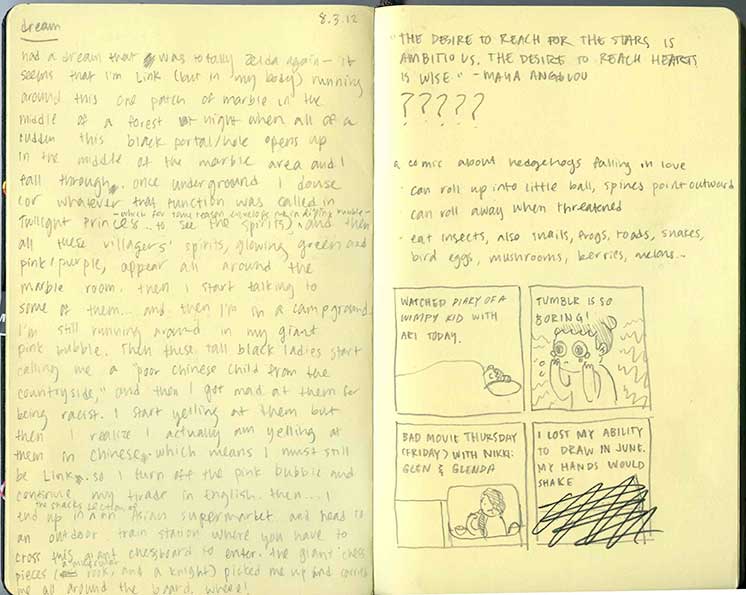 dream
8.3.12
had a dream that was totally Zelda again - it
seems that I'm Link (but in my body) running
around this one patch of marble in the
middle of a forest at night when all of a
sudden this black portal/hole opens up
in the middle of the marble area and I
fall through. once underground I douse
(or whatever that function was called in
- which for some reason envelops me in a pink bubble -
Twilight Princess... to see the spirits). and then
all these villagers' spirits, glowing green and
pink/purple, appear all around the
marble room. then I start talking to
some of them... and then I'm in a campground.
I'm still running around in my giant
pink bubble. Then these tall black ladies start
calling me a "poor Chinese child from the
countryside," and then I got mad at them for
being racist. I start yelling at them but
then I realize I actually am yelling at
them in Chinese which means I must still
be Link. so I turn off the pink bubble and
continue my tirade in English. then... I
the snacks section of
end up in an Asian supermarket and head to
an outdoor train station where you have to
cross this giant chessboard to enter. the giant chess
pieces (rook, and a knight) picked me up and carried
me all around the board. whee!
"THE DESIRE TO REACH FOR THE STARS IS
AMBITIOUS. THE DESIRE TO REACH HEARTS
IS WISE." - MAYA ANGELOU
?????
a comic about hedgehogs falling in love
· can roll up into little ball, spines point outward
can roll away when threatened
· eat insects, also snails, frogs, toads, snakes,
bird eggs, mushrooms, berries, melons...
WATCHED DIARY OF A
WIMPY KID WITH
ARI TODAY.
TUMBLR IS SO
BORING!
BAD MOVIE THURSDAY
(FRIDAY) WITH NIKKI:
GLEN & GLENDA
I LOST MY ABILITY
TO DRAW IN JUNE.
MY HANDS WOULD
SHAKE